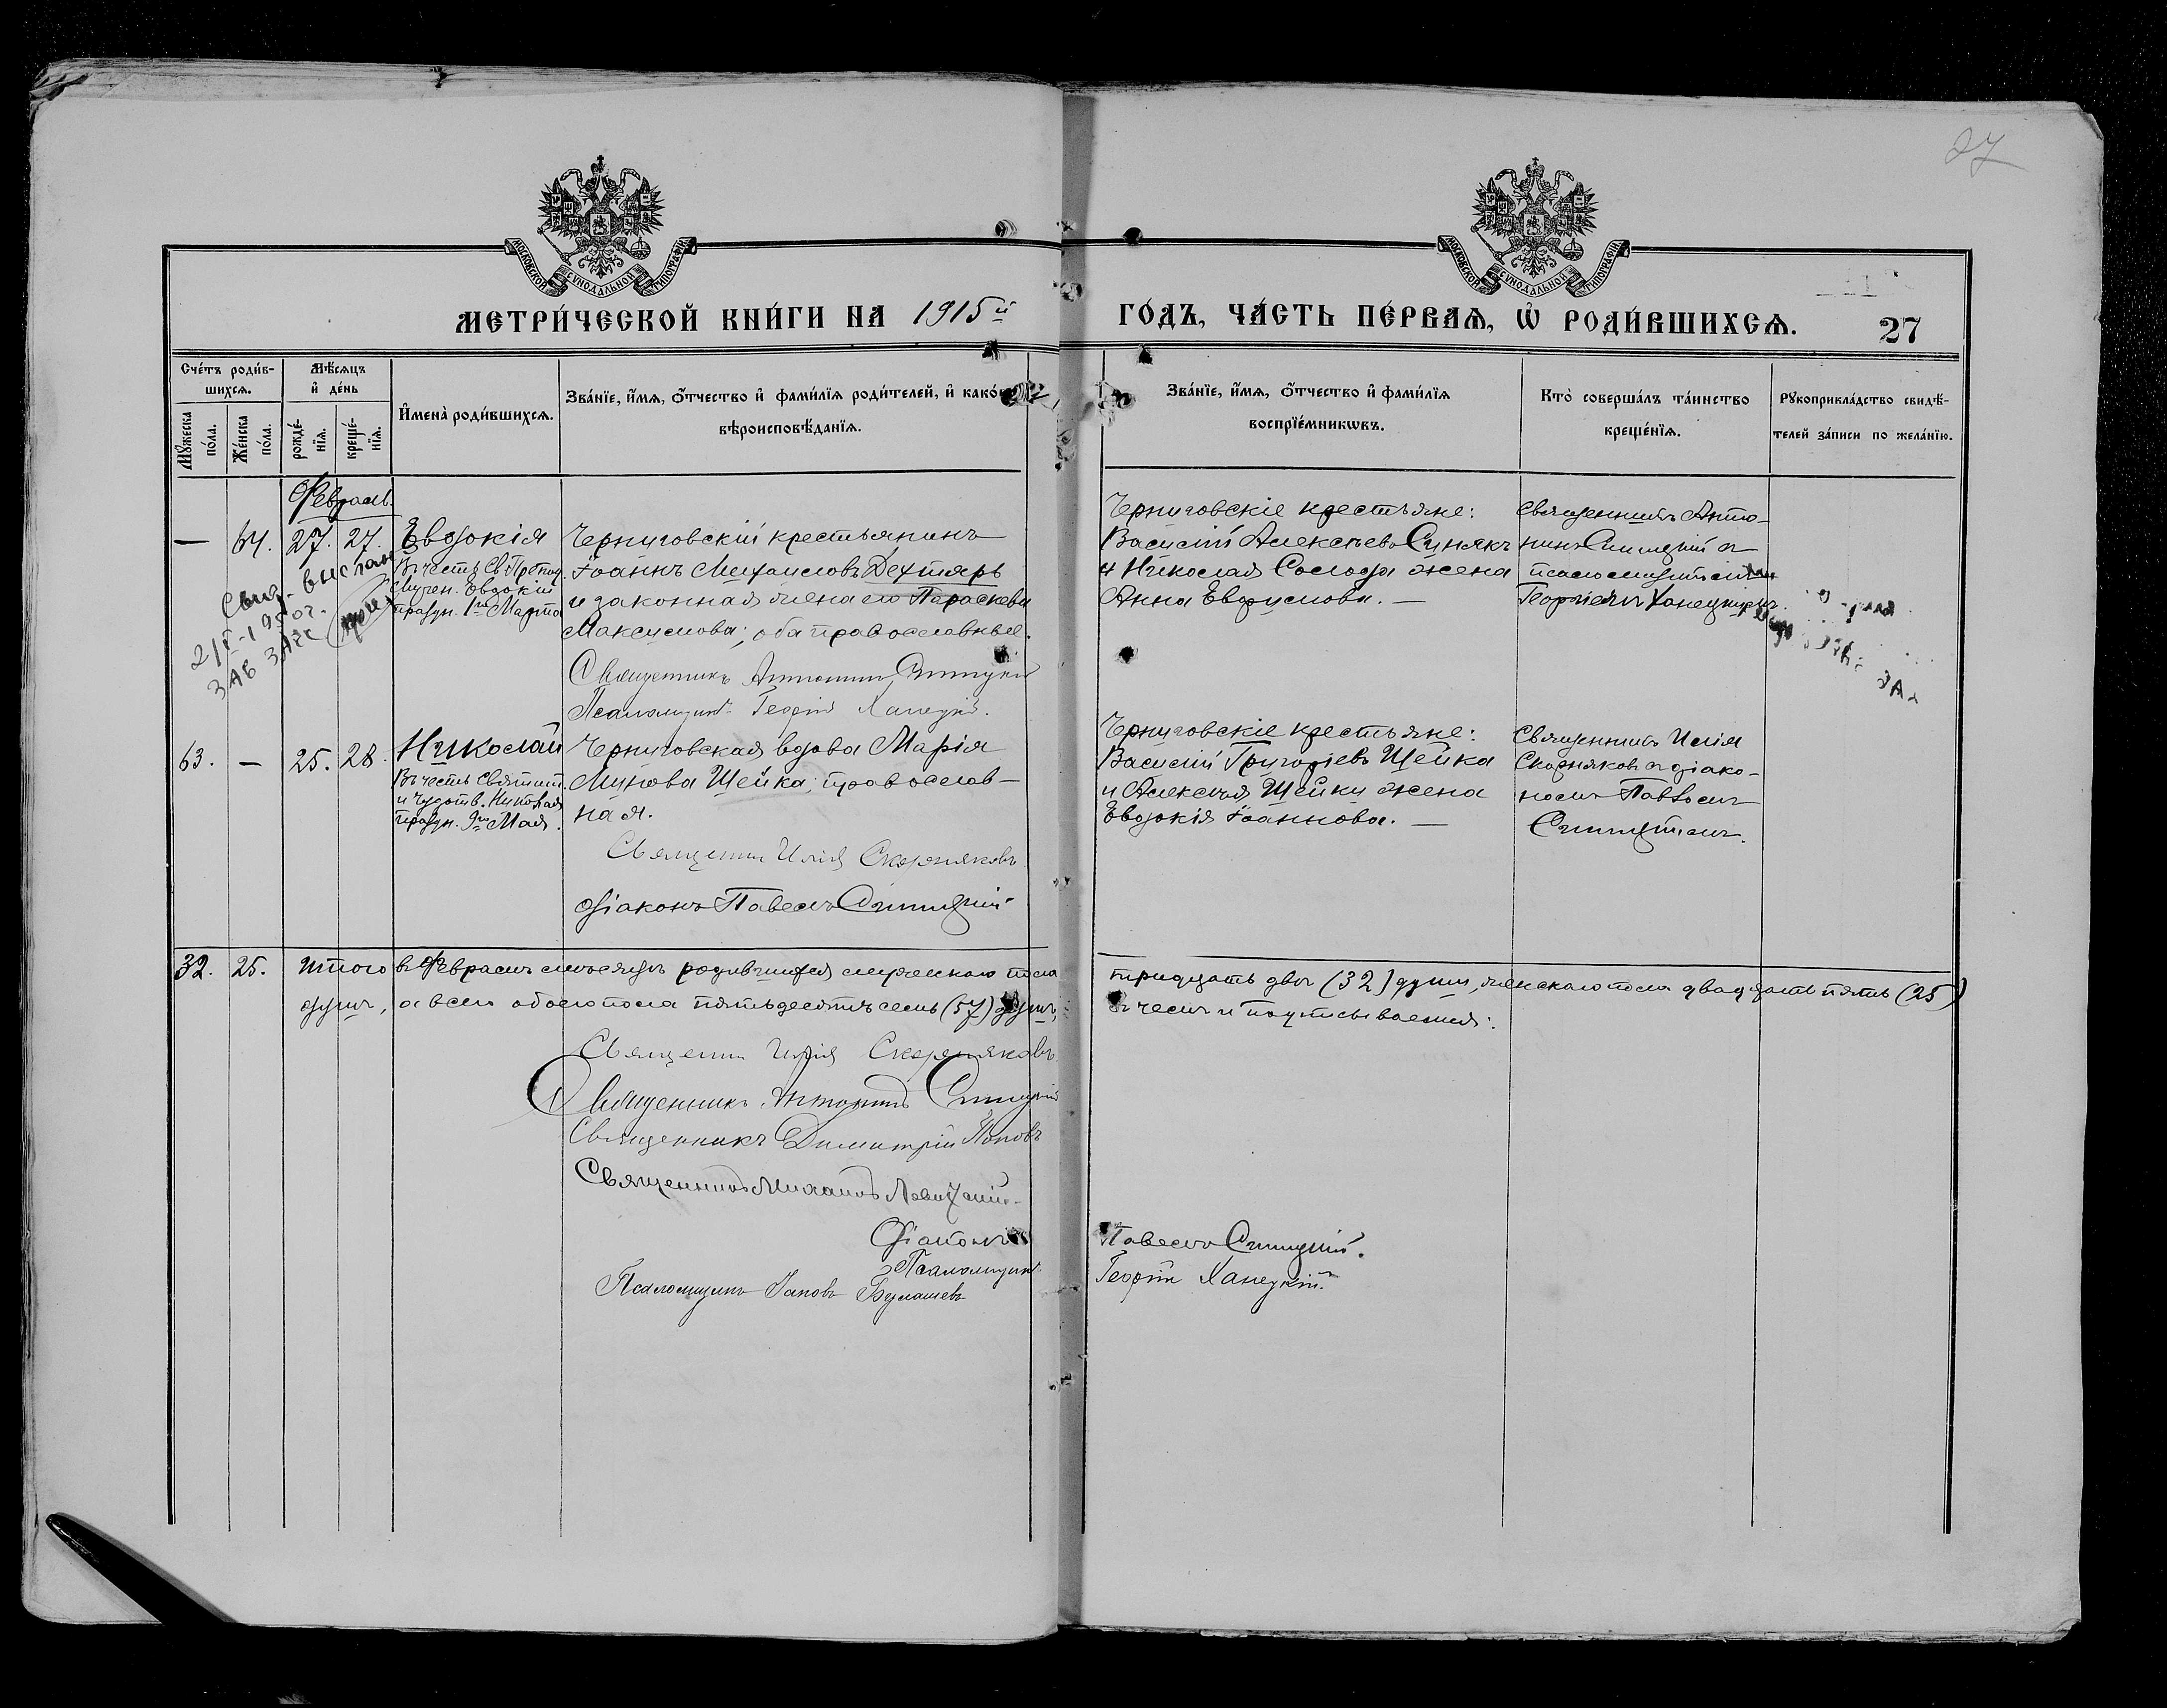 27
МОСКОВСКОЙ СУНОДАЛЬНОЙ ТИПОГРАФІИ
МОСКОВСКОЙ СУНОДАЛЬНОЙ ТИПОГРАФІИ
МЕТРИ́ЧЕСКОЙ КНИ́ГИ НА 1915й
ГО́ДЪ, ЧА́СТЬ ПЕ́РВАѦ, Ѡ҆ РОДИ́ВШИХСѦ. 27
Сче́тъ роди́в-
шихсѧ.
Мѹ́жеска
по́ла.
Же́нска
по́ла.
Мѣ́сѧцъ
и҆ де́нь
рожде́-
нїѧ.
креще́-
нїѧ.
И҆мена̀ роди́вшихсѧ.
Зва́нїе, и҆́мѧ, ѻ҆́тчество и҆ фами́лїѧ роди́телей, и҆ како́гѡ
вѣроисповѣ́данїѧ.
Зва́нїе, и҆́мѧ, ѻ҆́тчество и҆ фами́лїѧ
воспрїе́мникѡвъ.
Кто̀ соверша́лъ та́инство
креще́нїѧ.
Рѹкоприкла́дство свидѣ́-
телей за́писи по жела́нїю.
Февраль.
— 64. 27. 27. Евдокія
Въ честь Св. Препод.
Мучен. Евдокіи
праздн. 1го Марта
Черниговскій крестьянинъ
Іоаннъ Михаиловъ Дехтярь
и законная жена его Параскева
Максимова; оба православные.
Священникъ Антонинъ Синицкій
Псаломщикъ Георгій Ханецкій.
Черниговскіе крестьяне:
Василій Алексѣевъ Синякъ
и Николая Солода жена
Анна Евфимова. —
Священникъ Анто-
нинъ Синицкій съ
псаломщикомъ
Георгіемъ Ханецкимъ.
Свид. выслан
2/V-1950г.
ЗАВ ЗАГС
63. — 25. 28. Николай
Въ честь Святит.
и Чудотв. Николая
праздн. 9го Мая.
Черниговская вдова Марія
Минова Шейка; православ-
ная.
Священникъ Илія Скорняковъ
Діаконъ Павелъ Синицкій
Черниговскіе крестьяне:
Василій Григоріевъ Шейка
и Алексѣя Шейки жена
Евдокія Іоаннова. —
Священникъ Илія
Скорняковъ съ діако-
номъ Павломъ
Синицкимъ.
32. 25. Итого въ Февралѣ мѣсяцѣ родившихся мужескаго пола
тридцать два (32) души, женскаго пола двадцать пять (25)
душъ, а всего обоего пола пятьдесятъ семь (57) душъ,
въ чемъ и подписываемся:
Священникъ Илія Скорняковъ
Священникъ Антонинъ Синицкій
Священникъ Димитрій Поповъ
Священникъ Михаилъ Левицкій
Діаконъ Павелъ Синицкій.
Псаломщикъ Георгій Ханецкій.
Псаломщикъ Іаковъ Булашевъ